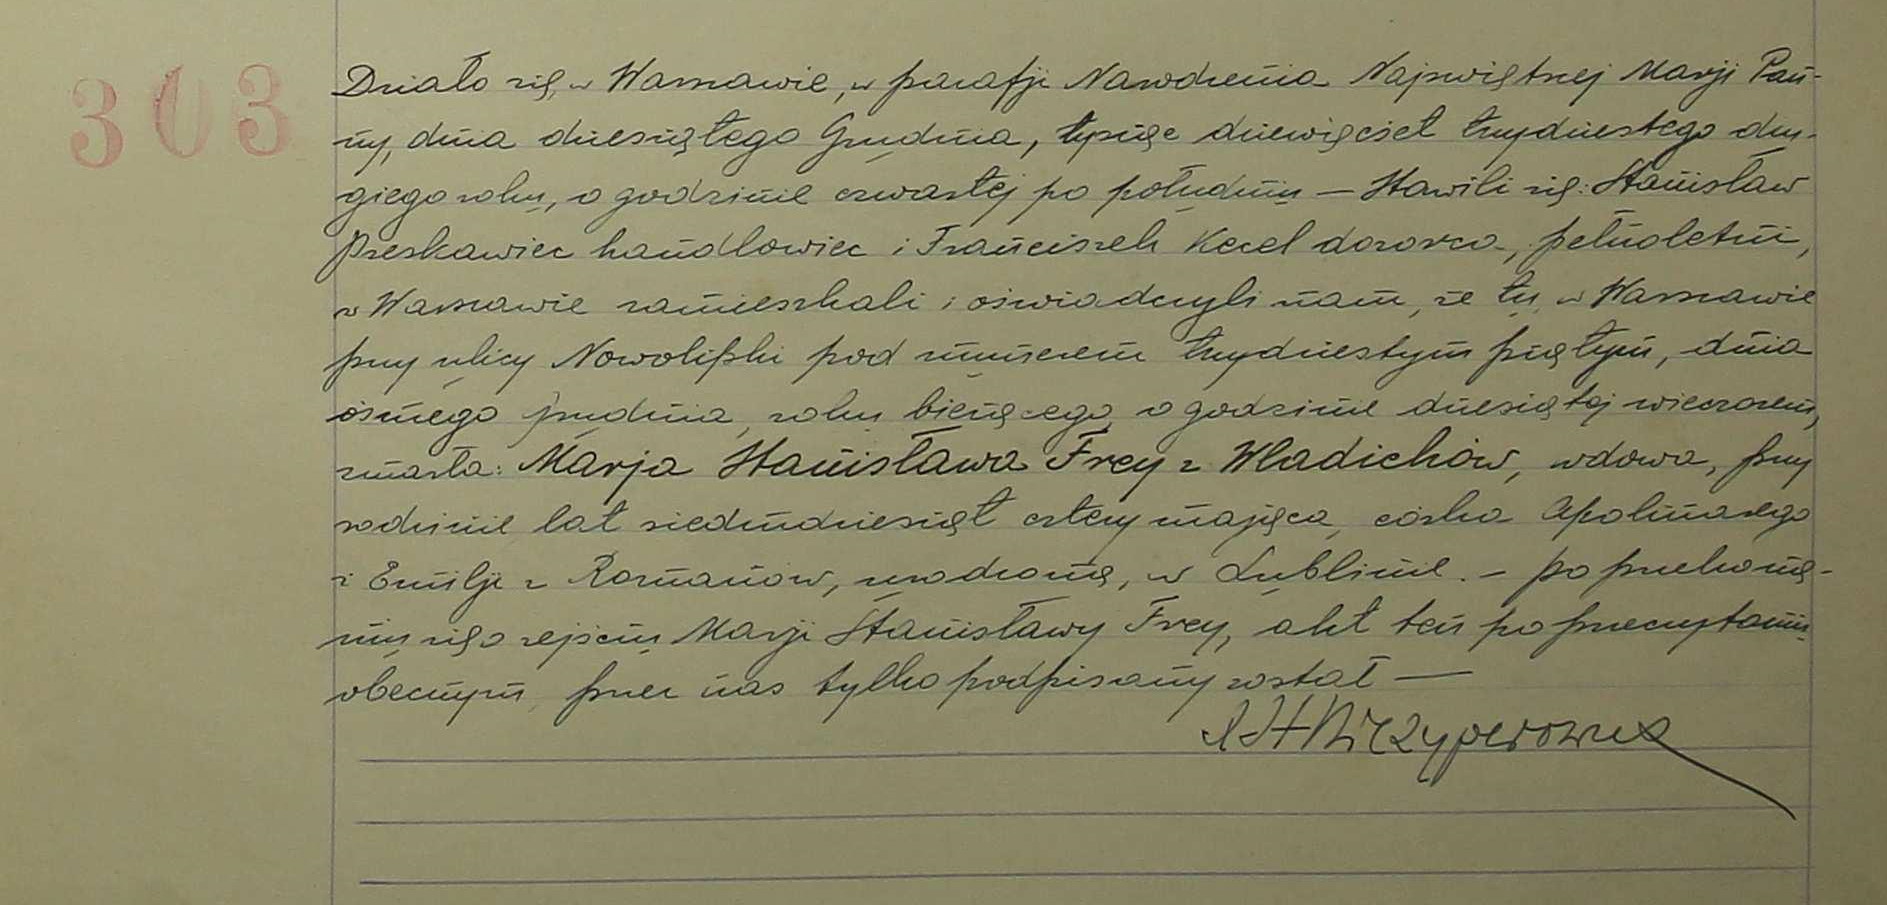 303
Działo się w Warszawie, w parafji Narodzenia Najświętszej Marji Pan-
ny, dnia dziesiątego Grudnia, tysiąc dziewięćset trzydziestego dru-
giego roku, o godzinie czwartej po południu — Stawili się: Stanisław
Przeskawiec handlowiec i Franciszek Kecel dozorca, pełnoletni,
w Warszawie zamieszkali i oświadczyli nam, że tu, w Warszawie
przy ulicy Nowolipki pod numerem trzydziestym piątym, dnia
ósmego grudnia, roku bieżącego, o godzinie dziesiątej wieczorem,
zmarła: Marja Stanisława Frey z Wladichów, wdowa, przy
rodzinie, lat siedmdziesiąt cztery mająca, córka Apolinarego
i Emilji z Romanów, urodzona, w Lublinie. — Po przekona-
niu się o zejściu Marji Stanisławy Frey, akt ten po przeczytaniu
obecnym, przez nas tylko podpisany został —